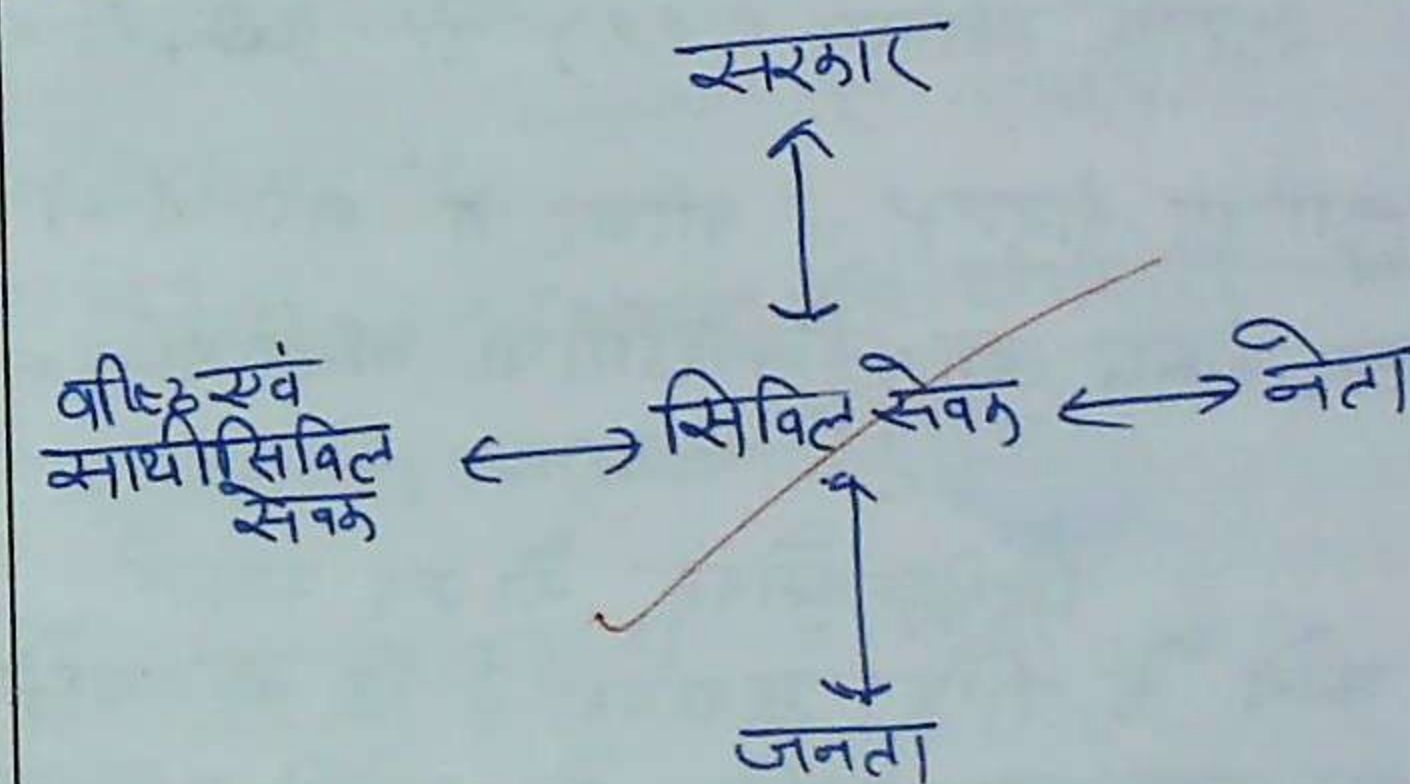 सरकार
वरिष्ठ एवं
साथी सिविल
सेवक
सिविल सेवक
नेता
जनता